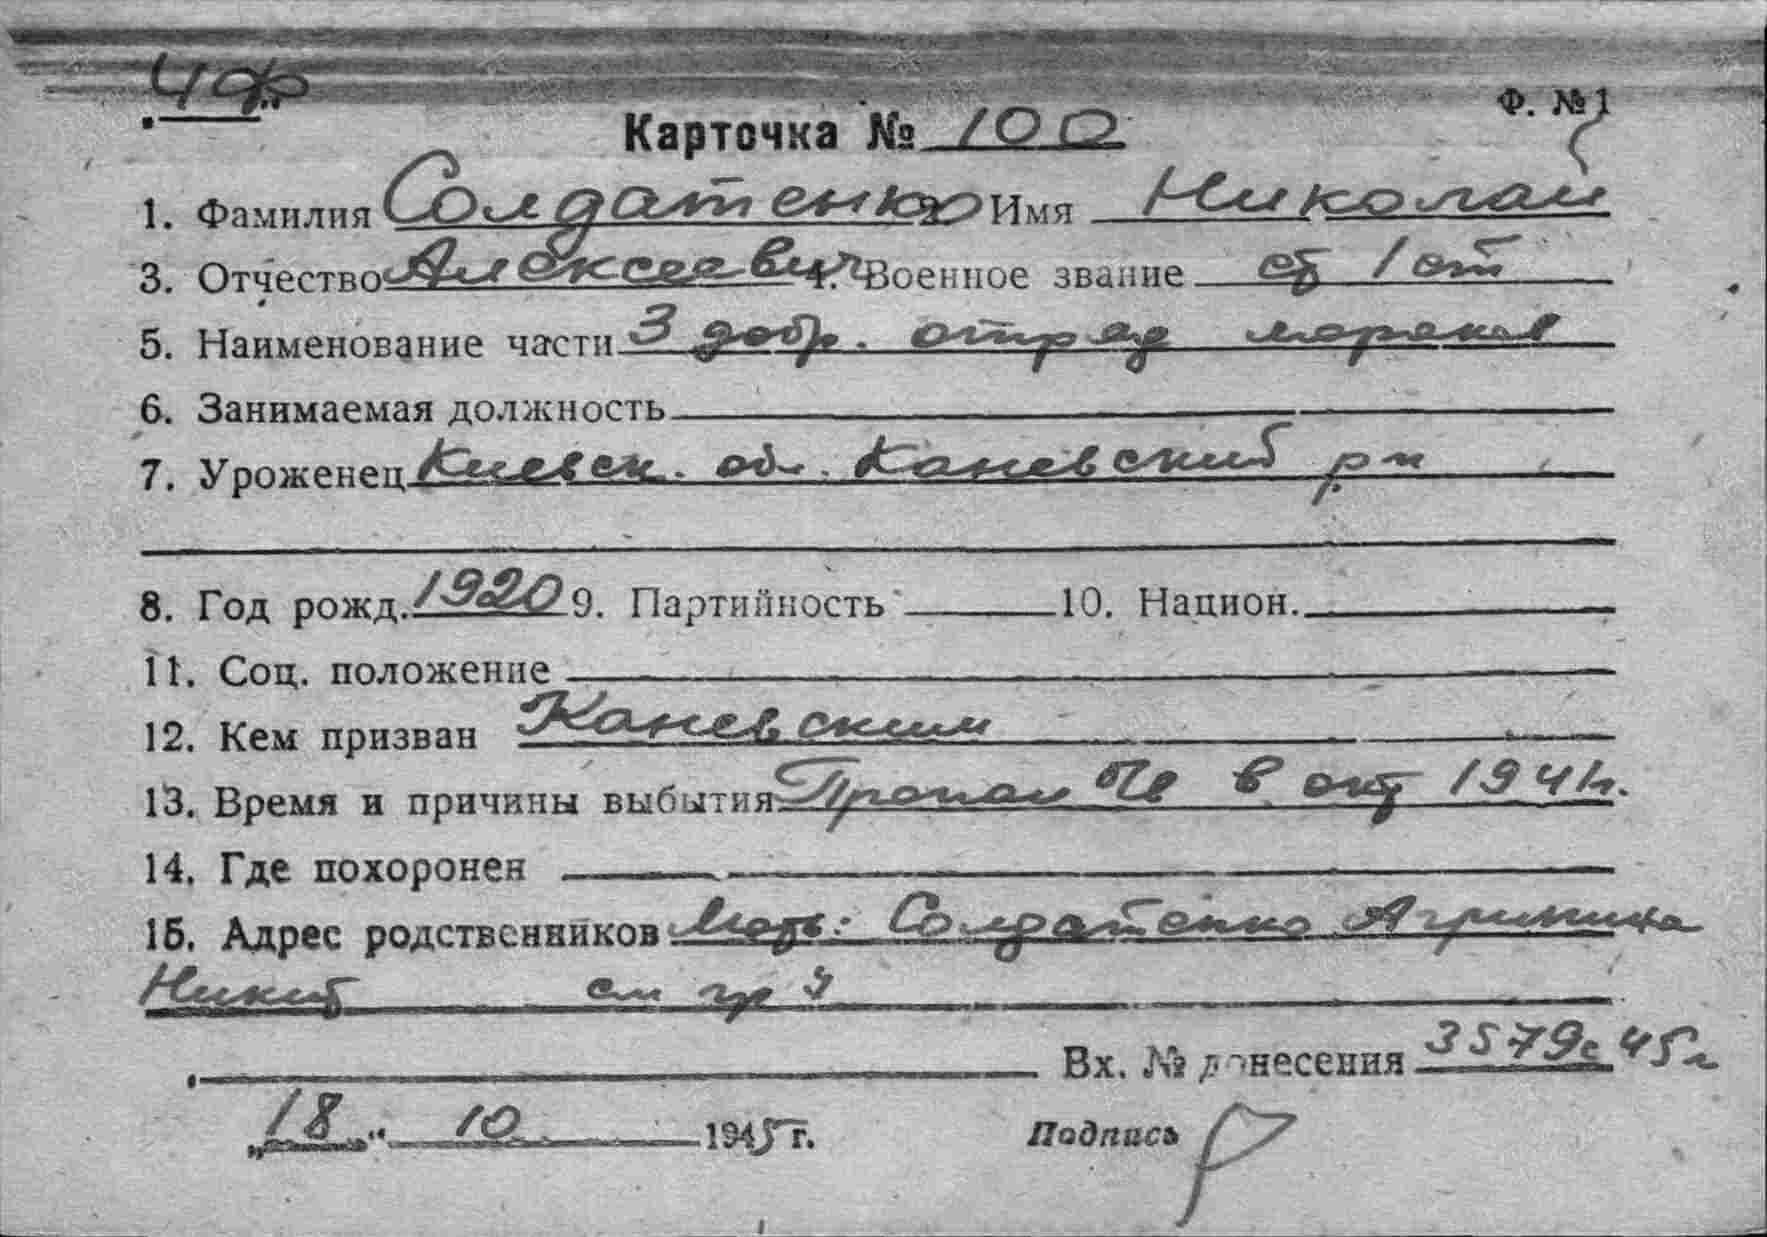 ЧФ
Ф. №1
Карточка № 100
1. Фамилия Солдатенко 2. Имя Николай
3. Отчество Алексеевич 4. Военное звание ст 1 ст
5. Наименование части 3 добр. отряд моряков
6. Занимаемая должность
7. Уроженец Киевск. обл. Каневский р-н
8. Год рожд. 1920 9. Партийность 10. Национ.
11. Соц. положение
12. Кем призван Каневским
13. Время и причины выбытия Пропал б/в в окт 1941г.
14. Где похоронен
15. Адрес родственников Мать: Солдатенко Агрипина
Никит см гр 7
Вх. № донесения 3579с 45г
„18“ 10 1945 г. Подпись